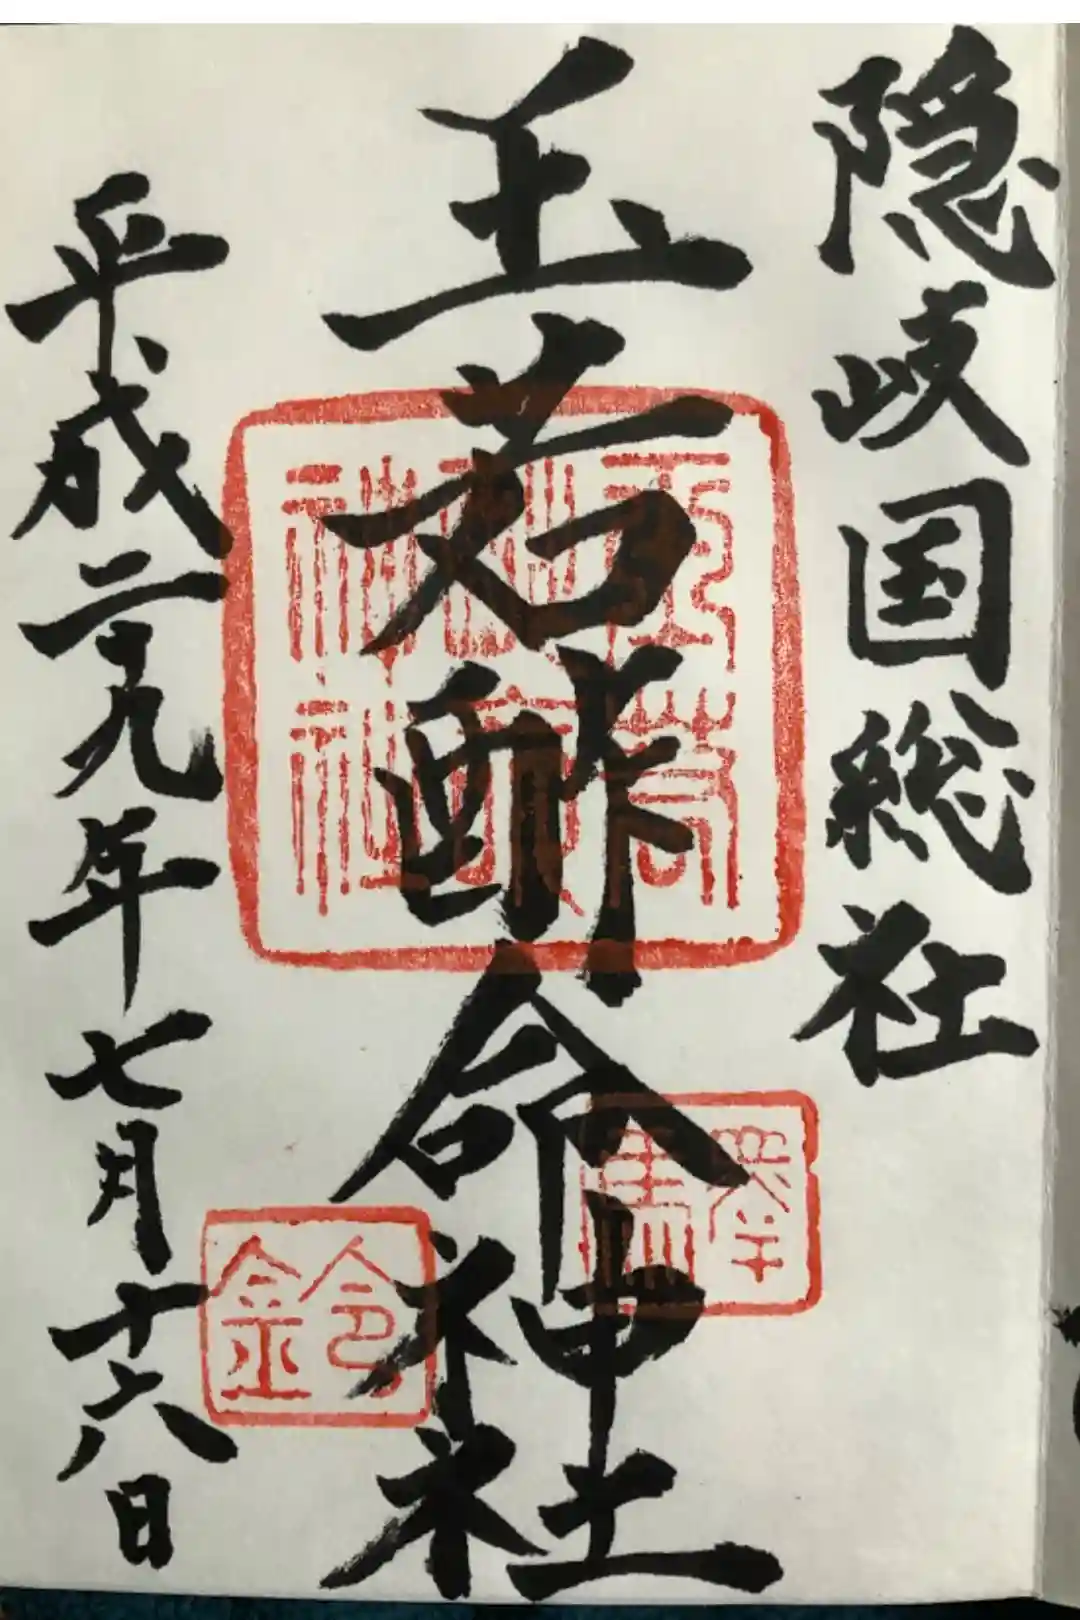 隠岐国総社
玉若酢命神社
平成二十九年七月十六日
玉若
酢命
神社
驛
鈴